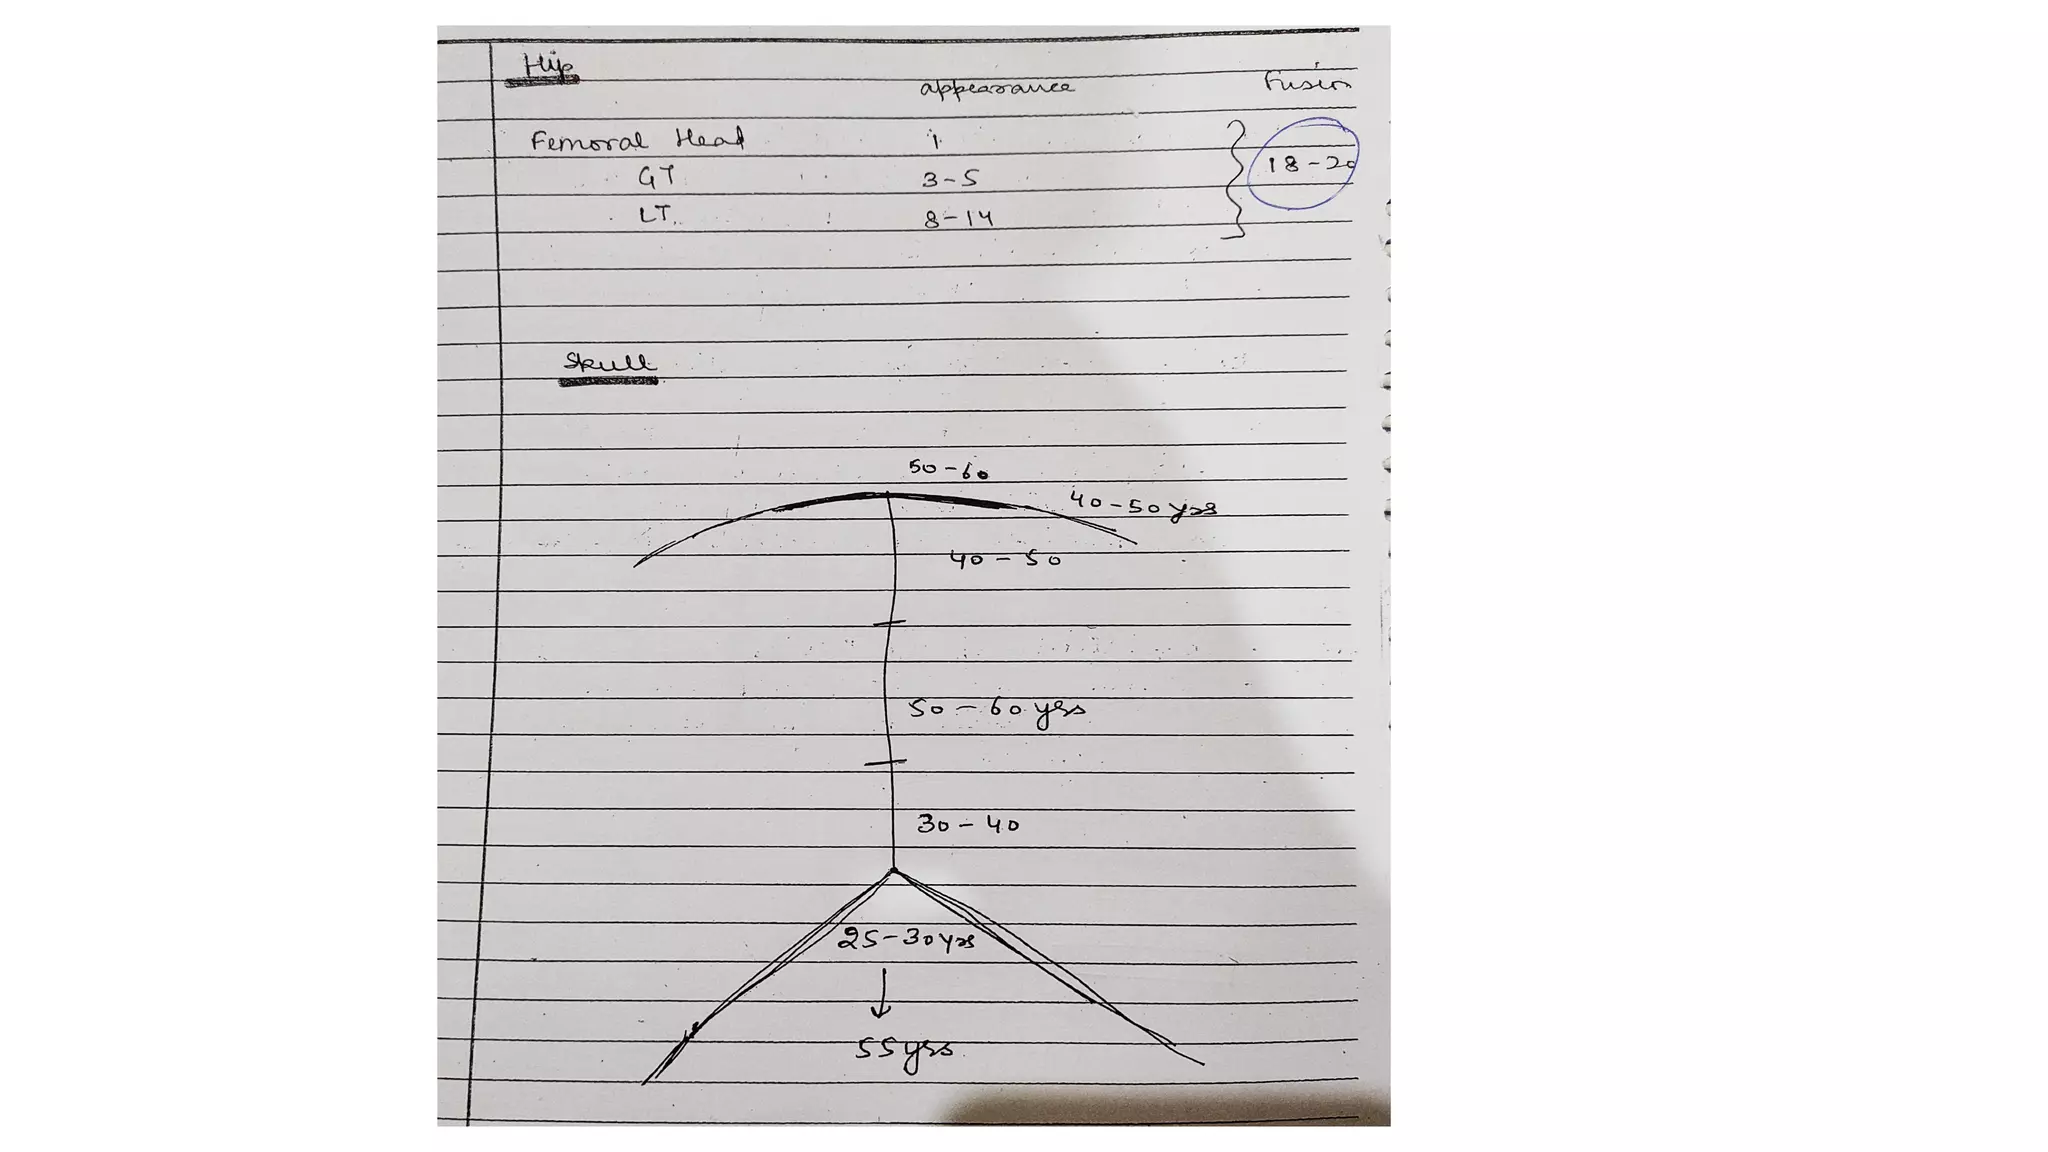 Hip
appearance Fusion
Femoral Head 1
GT 3-5 18-20
LT. 8-14
Skull
50-60
40-50 yrs
40-50
50-60 yrs
30-40
25-30 yrs
55 yrs